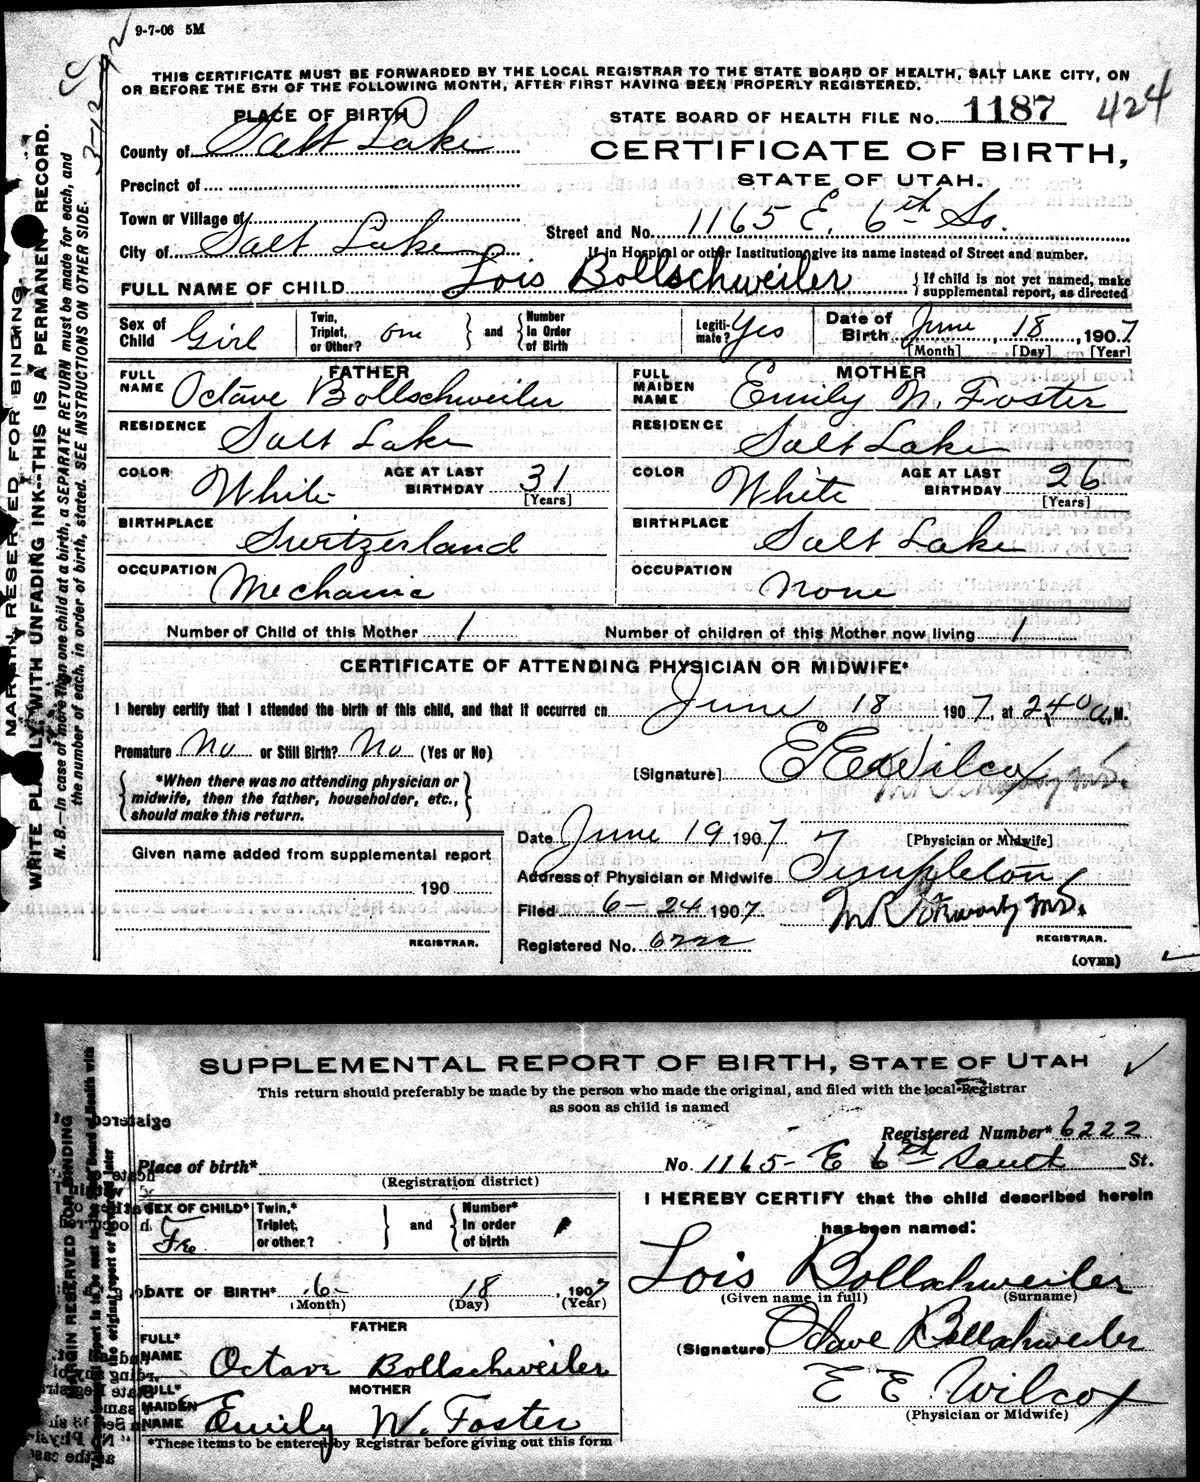 9-7-06 5M
THIS CERTIFICATE MUST BE FORWARDED BY THE LOCAL REGISTRAR TO THE STATE BOARD OF HEALTH, SALT LAKE CITY, ON
OR BEFORE THE 5TH OF THE FOLLOWING MONTH, AFTER FIRST HAVING BEEN PROPERLY REGISTERED.
PLACE OF BIRTH
STATE BOARD OF HEALTH FILE No. 1187 424
County of Salt Lake
CERTIFICATE OF BIRTH,
STATE OF UTAH.
Precinct of
Town or Village of
Street and No. 1165 E. 6th So.
City of Salt Lake
If in Hospital or other Institution, give its name instead of Street and number.
FULL NAME OF CHILD Lois Bollschweiler
{If child is not yet named, make
supplemental report, as directed
Sex of Child Girl
Twin, Triplet, or Other? one } and { Number In Order of Birth
Legiti-mate? Yes
Date of Birth June 18, 1907
[Month] [Day] [Year]
FATHER
FULL NAME Octave Bollschweiler
RESIDENCE Salt Lake
COLOR White AGE AT LAST BIRTHDAY 31 [Years]
BIRTHPLACE Switzerland
OCCUPATION Mechanic
MOTHER
FULL MAIDEN NAME Emily N. Foster
RESIDENCE Salt Lake
COLOR White AGE AT LAST BIRTHDAY 26 [Years]
BIRTHPLACE Salt Lake
OCCUPATION None
Number of Child of this Mother 1 Number of children of this Mother now living 1
CERTIFICATE OF ATTENDING PHYSICIAN OR MIDWIFE*
I hereby certify that I attended the birth of this child, and that it occurred on June 18 1907, at 240 a.M.
Premature No or Still Birth? No (Yes or No)
[Signature] E E Wilcox
{*When there was no attending physician or
midwife, then the father, householder, etc.,
should make this return.}
Date June 19 1907
[Physician or Midwife]
Given name added from supplemental report
190
REGISTRAR.
Address of Physician or Midwife Templeton
Filed 6-24 1907
M R Stewart M.D.
REGISTRAR.
Registered No. 6222
(OVER)
MARGIN RESERVED FOR BINDING.
WRITE PLAINLY, WITH UNFADING INK--THIS IS A PERMANENT RECORD.
N. B.—In case of more than one child at a birth, a SEPARATE RETURN must be made for each, and
the number of each, in order of birth, stated. SEE INSTRUCTIONS ON OTHER SIDE.
SUPPLEMENTAL REPORT OF BIRTH, STATE OF UTAH
This return should preferably be made by the person who made the original, and filed with the local Registrar
as soon as child is named
Registered Number* 6222
Place of birth*
(Registration district)
No. 1165- E 6th South St.
SEX OF CHILD* Fe
Twin,* Triplet, or other? } and { Number* In order of birth
DATE OF BIRTH* 6- 18, 1907
(Month) (Day) (Year)
FATHER
FULL* NAME Octave Bollschweiler
MOTHER
FULL* MAIDEN NAME Emily W. Foster
*These items to be entered by Registrar before giving out this form
I HEREBY CERTIFY that the child described herein
has been named:
Lois Bollschweiler
(Given name in full) (Surname)
(Signature) Octave Bollschweiler
E E. Wilcox
(Physician or Midwife)
MARGIN RESERVED FOR BINDING